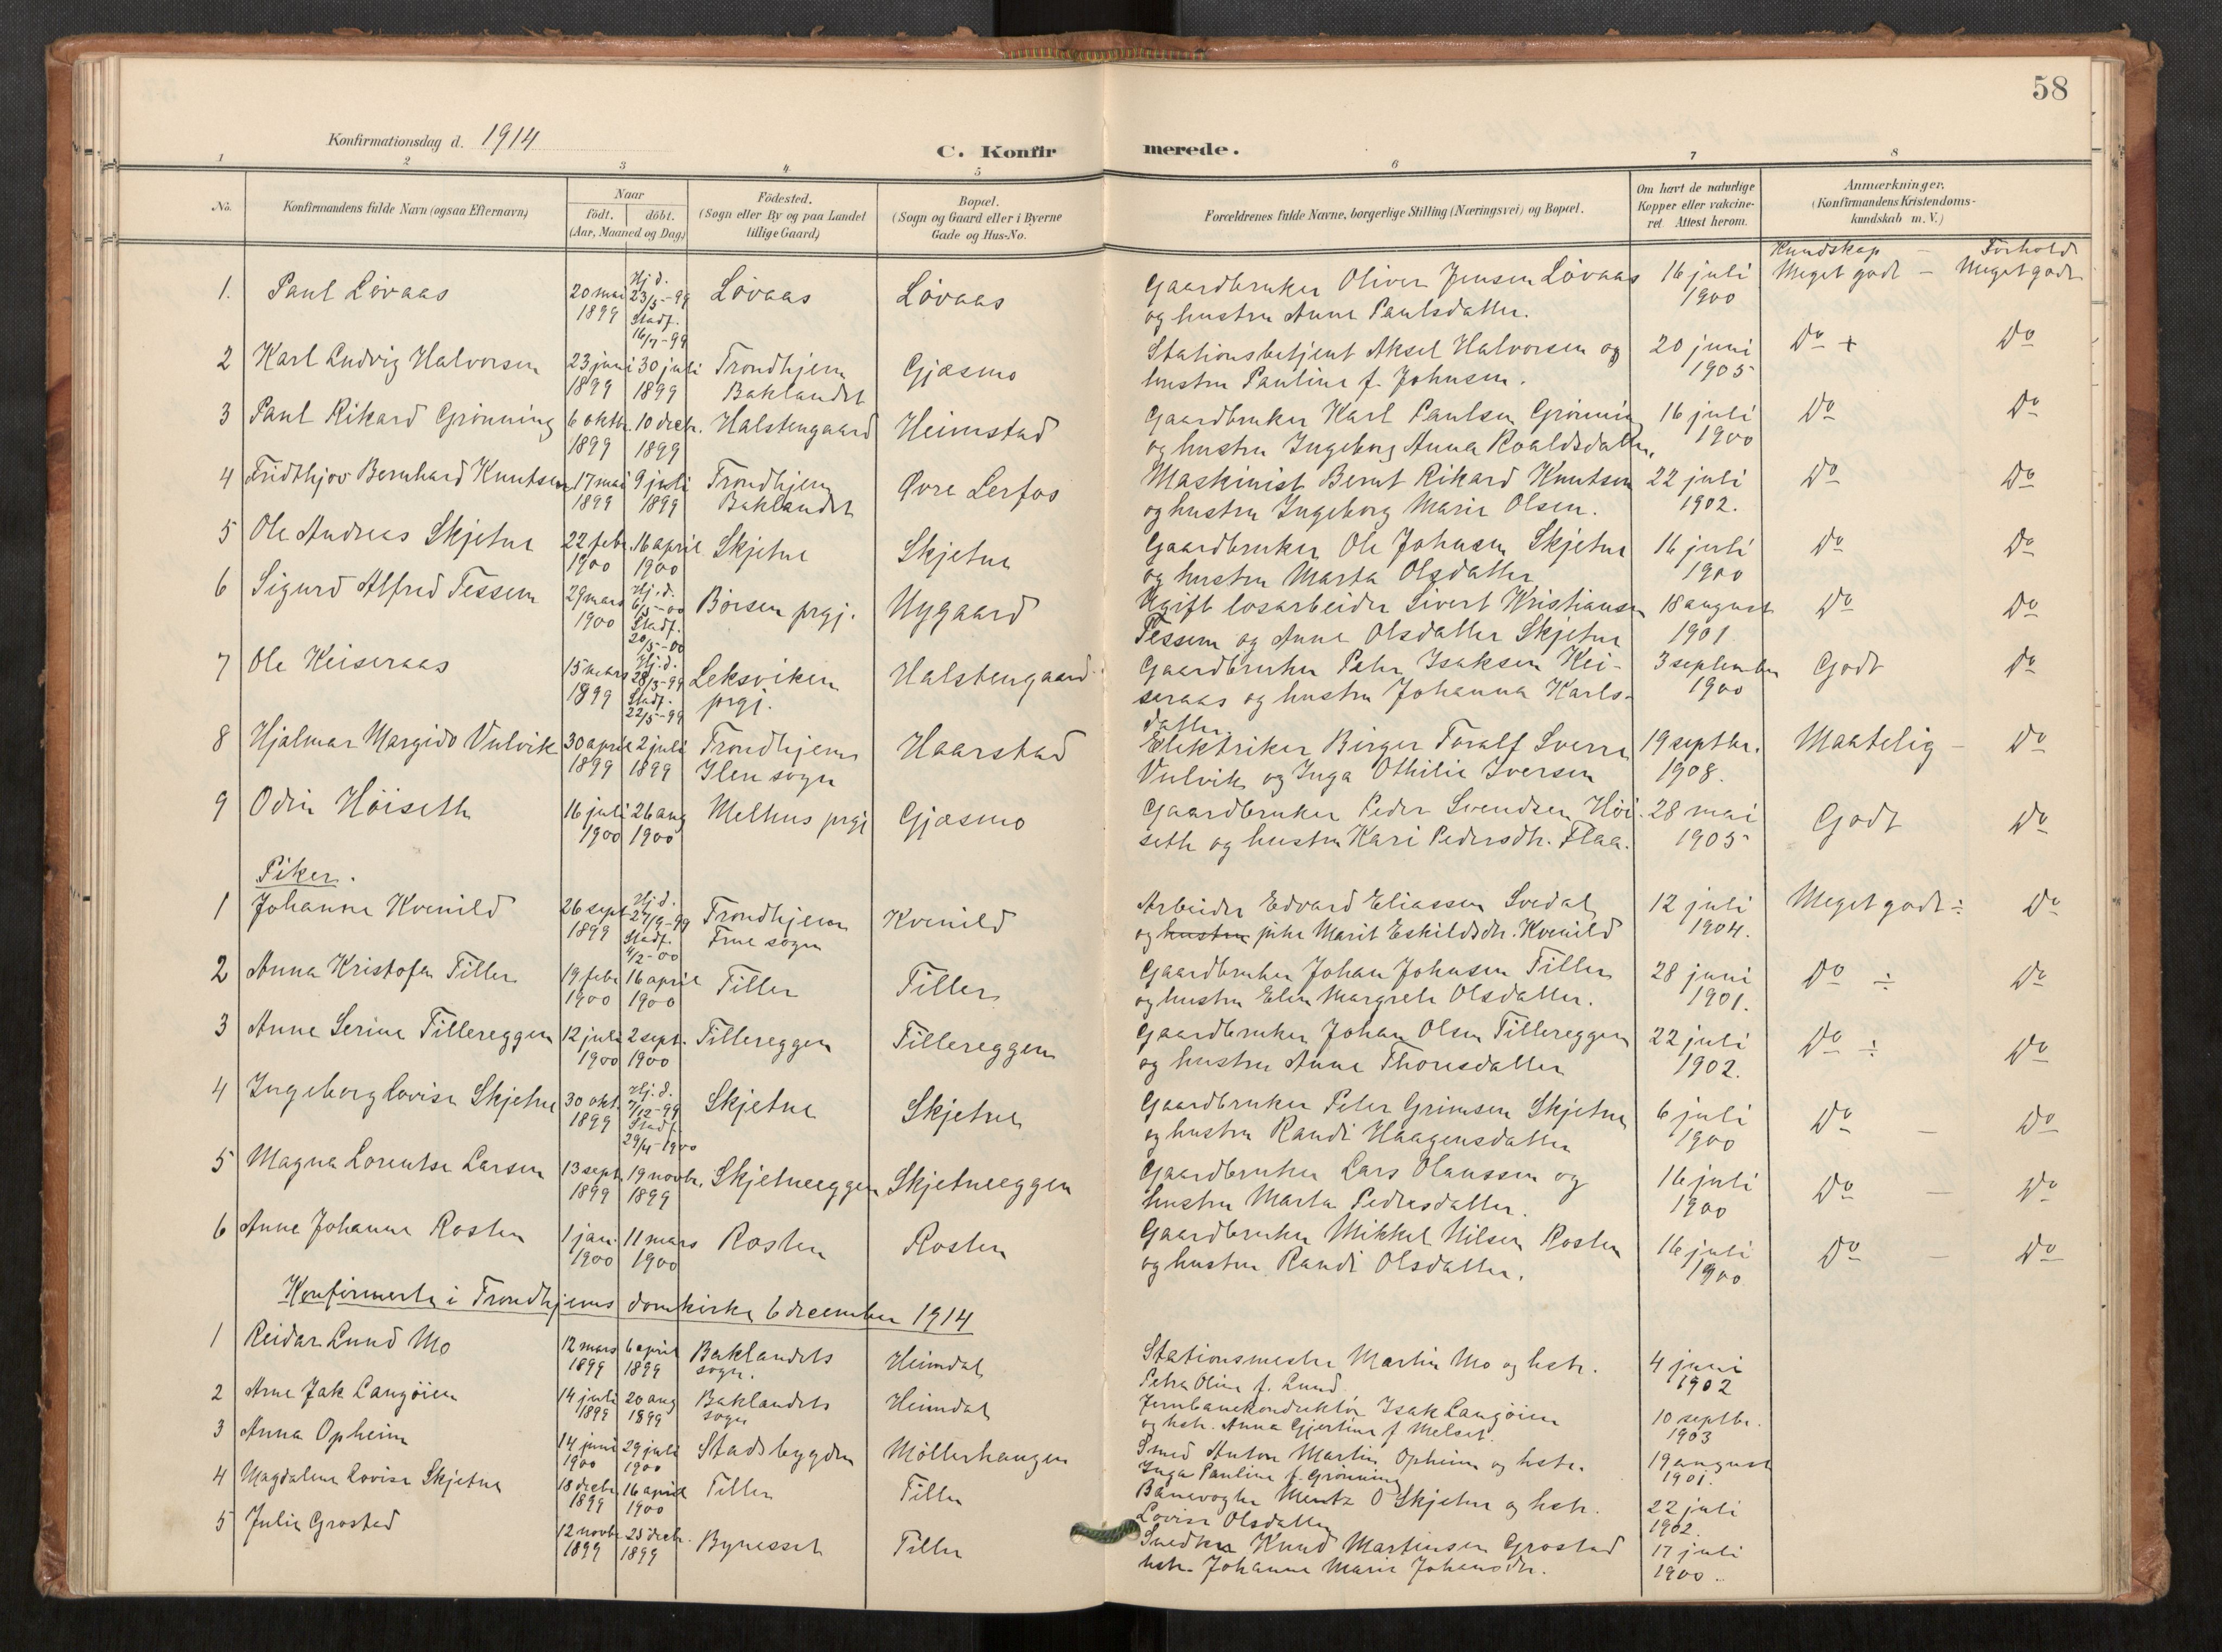 58
Konfirmationsdag d. 1914
C. Konfirmerede.
1 2 3 4 5 6 7 8
No.
Konfirmandens fulde Navn (ogsaa Efternavn)
Naar
født. døbt.
(Aar, Maaned og Dag)
Födested.
(Sogn eller By og paa Landet
tillige Gaard)
Bopæl.
(Sogn og Gaard eller i Byerne
Gade og Hus-No.
Forældrenes fulde Navne, borgerlige Stilling (Næringsvei) og Bopæl.
Om havt de naturlige
Kopper eller vakcine-
ret. Attest herom.
Anmærkninger.
(Konfirmandens Kristendoms-
kundskab m. V.)
Kundskap – Forhold
1. Paul Løvaas 20 mai 1899 Hj. d. 23/5-99 Stadf. 16/7-99 Løvaas Løvaas Gaardbruker Oliver Jensen Løvaas 16 juli Meget godt – Meget godt
og hustru Anne Paulsdatter. 1900
2 Karl Ludvig Halvorsen 23 juni 30 juli Trondhjem Gjæsmo Stationsbetjent Aksel Halvorsen og 20 juni Do + Do
1899 1899 Baklandet hustru Pauline f. Johnsen. 1905
3 Paul Rikard Grønning 6 oktbr. 10 decbr. Halstengaard Heimstad Gaardbruker Karl Paulsen Grønning 16 juli Do Do
1899 1899 og hustru Ingeborg Anna Roaldsdatter. 1900
4 Fridthjov Bernhard Knutsen 17 mai 9 juli Trondhjem Øvre Lerfos Maskinist Bernt Rikard Knutsen 22 juli Do Do
1899 1899 Baklandet og hustru Ingeborg Marie Olsen. 1902.
5 Ole Andreas Skjetne 22 febr. 16 april Skjetne Skjetne Gaardbruker Ole Johnsen Skjetne 16 juli Do Do
1900 1900 og hustru Marta Olsdatter 1900
6 Sigurd Alfred Tessem 29 mars 1900 Hj. d. 6/5-00 Stadf. 20/5-00 Børsen prgj. Nygaard Ugift løsarbeider Sivert Kristiansen 18 august Do Do
Tessem og Anne Olsdatter Skjetne 1901.
7 Ole Keiseraas 15 mars 1899 Hj. d. 28/3-99 Stadf. 22/5-99 Leksviken prgj. Halstengaard. Gaardbruker Peter Isaksen Kei- 3 september Godt Do
seraas og hustru Johanna Karls- 1900
datter
8 Hjalmar Margido Vulvik 30 april 2 juli Trondhjem Haarstad Elektriker Birger Toralf Sverre 19 septbr. Maatelig – Do
1899 1899 Ilen sogn Vulvik og Inga Othilie Iversen 1908.
9 Odin Høiseth 16 juli 26 aug Melhus prgj Gjæsmo Gaardbruker Peder Svendsen Høi- 28 mai Godt Do
1900 1900 seth og hustru Kari Pedersdtr. Flaa. 1905
Piker.
1 Johanne Kvenild 26 sept 1899 Hj. d. 27/9-99 Stadf. 4/2-00 Trondhjem Frue sogn Kvenild Arbeider Edvard Eliassen Svedal 12 juli Meget godt ÷ Do
og hustru pike Marit Eskildsdtr. Kvenild 1904.
2 Anna Kristofa Tiller 19 febr 16 april Tiller Tiller Gaardbruker Johan Johnsen Tiller 28 juni Do ÷ Do
1900 1900 og hustru Elen Margrete Olsdatter. 1901.
3 Anne Serine Tillereggen 12 juli 2 sept. Tillereggen Tillereggen Gaardbruker Johan Olsen Tillereggen 22 juli Do ÷ Do
1900 1900 og hustru Anne Thoresdatter 1902.
4 Ingeborg Lovise Skjetne 30 okt. 1899 Hj. d. 7/12-99 Stadf. 29/4-1900 Skjetne Skjetne Gaardbruker Peter Grimsen Skjetne 6 juli Do – Do
og hustru Randi Haagensdatter 1900
5 Magna Lorentse Larsen 13 sept. 19 novbr. Skjetneeggen Skjetneeggen Gaardbruker Lars Olaussen og 16 juli Do – Do
1899 1899 hustru Marta Pedersdatter. 1900
6 Anne Johanne Rosten 1 jan. 11 mars Rosten Rosten Gaardbruker Mikkel Nilsen Rosten 16 juli Do – Do
1900 1900 og hustru Randi Olsdatter. 1900
Konfirmerte i Trondhjems domkirke 6 december 1914
1 Reidar Lund Mo 12 mars 6 april Baklandets Heimdal Stationsmester Martin Mo og hstr. 4 juni
1899 1899 sogn. Petra Oline f. Lund 1902
2 Arne Jak Langøien 14 juli 20 aug Baklandets Heimdal Jernbanekonduktør Isak Langøien 10 septbr.
1899 1899 sogn og hstr. Anna Gjertine f Melset. 1903
3 Anna Opheim 14 juni 29 juli Stadsbygden Møllerhaugen Smed Anton Martin Opheim og hstr. 19 august
1900 1900 Inga Pauline f. Grønning 1901.
4 Magdalene Lovise Skjetne 18 decbr. 16 april Tiller Tiller Banevogter Mentz O Skjetne og hstr. 22 juli
1899 1900 Lovise Olsdatter 1902.
5 Julie Grostad 12 novbr. 25 decbr. Bynesset Tiller Snedker Knud Martinsen Grostad 17 juli
1899 1899 hstr. Johanne Marie Johansdtr. 1900.